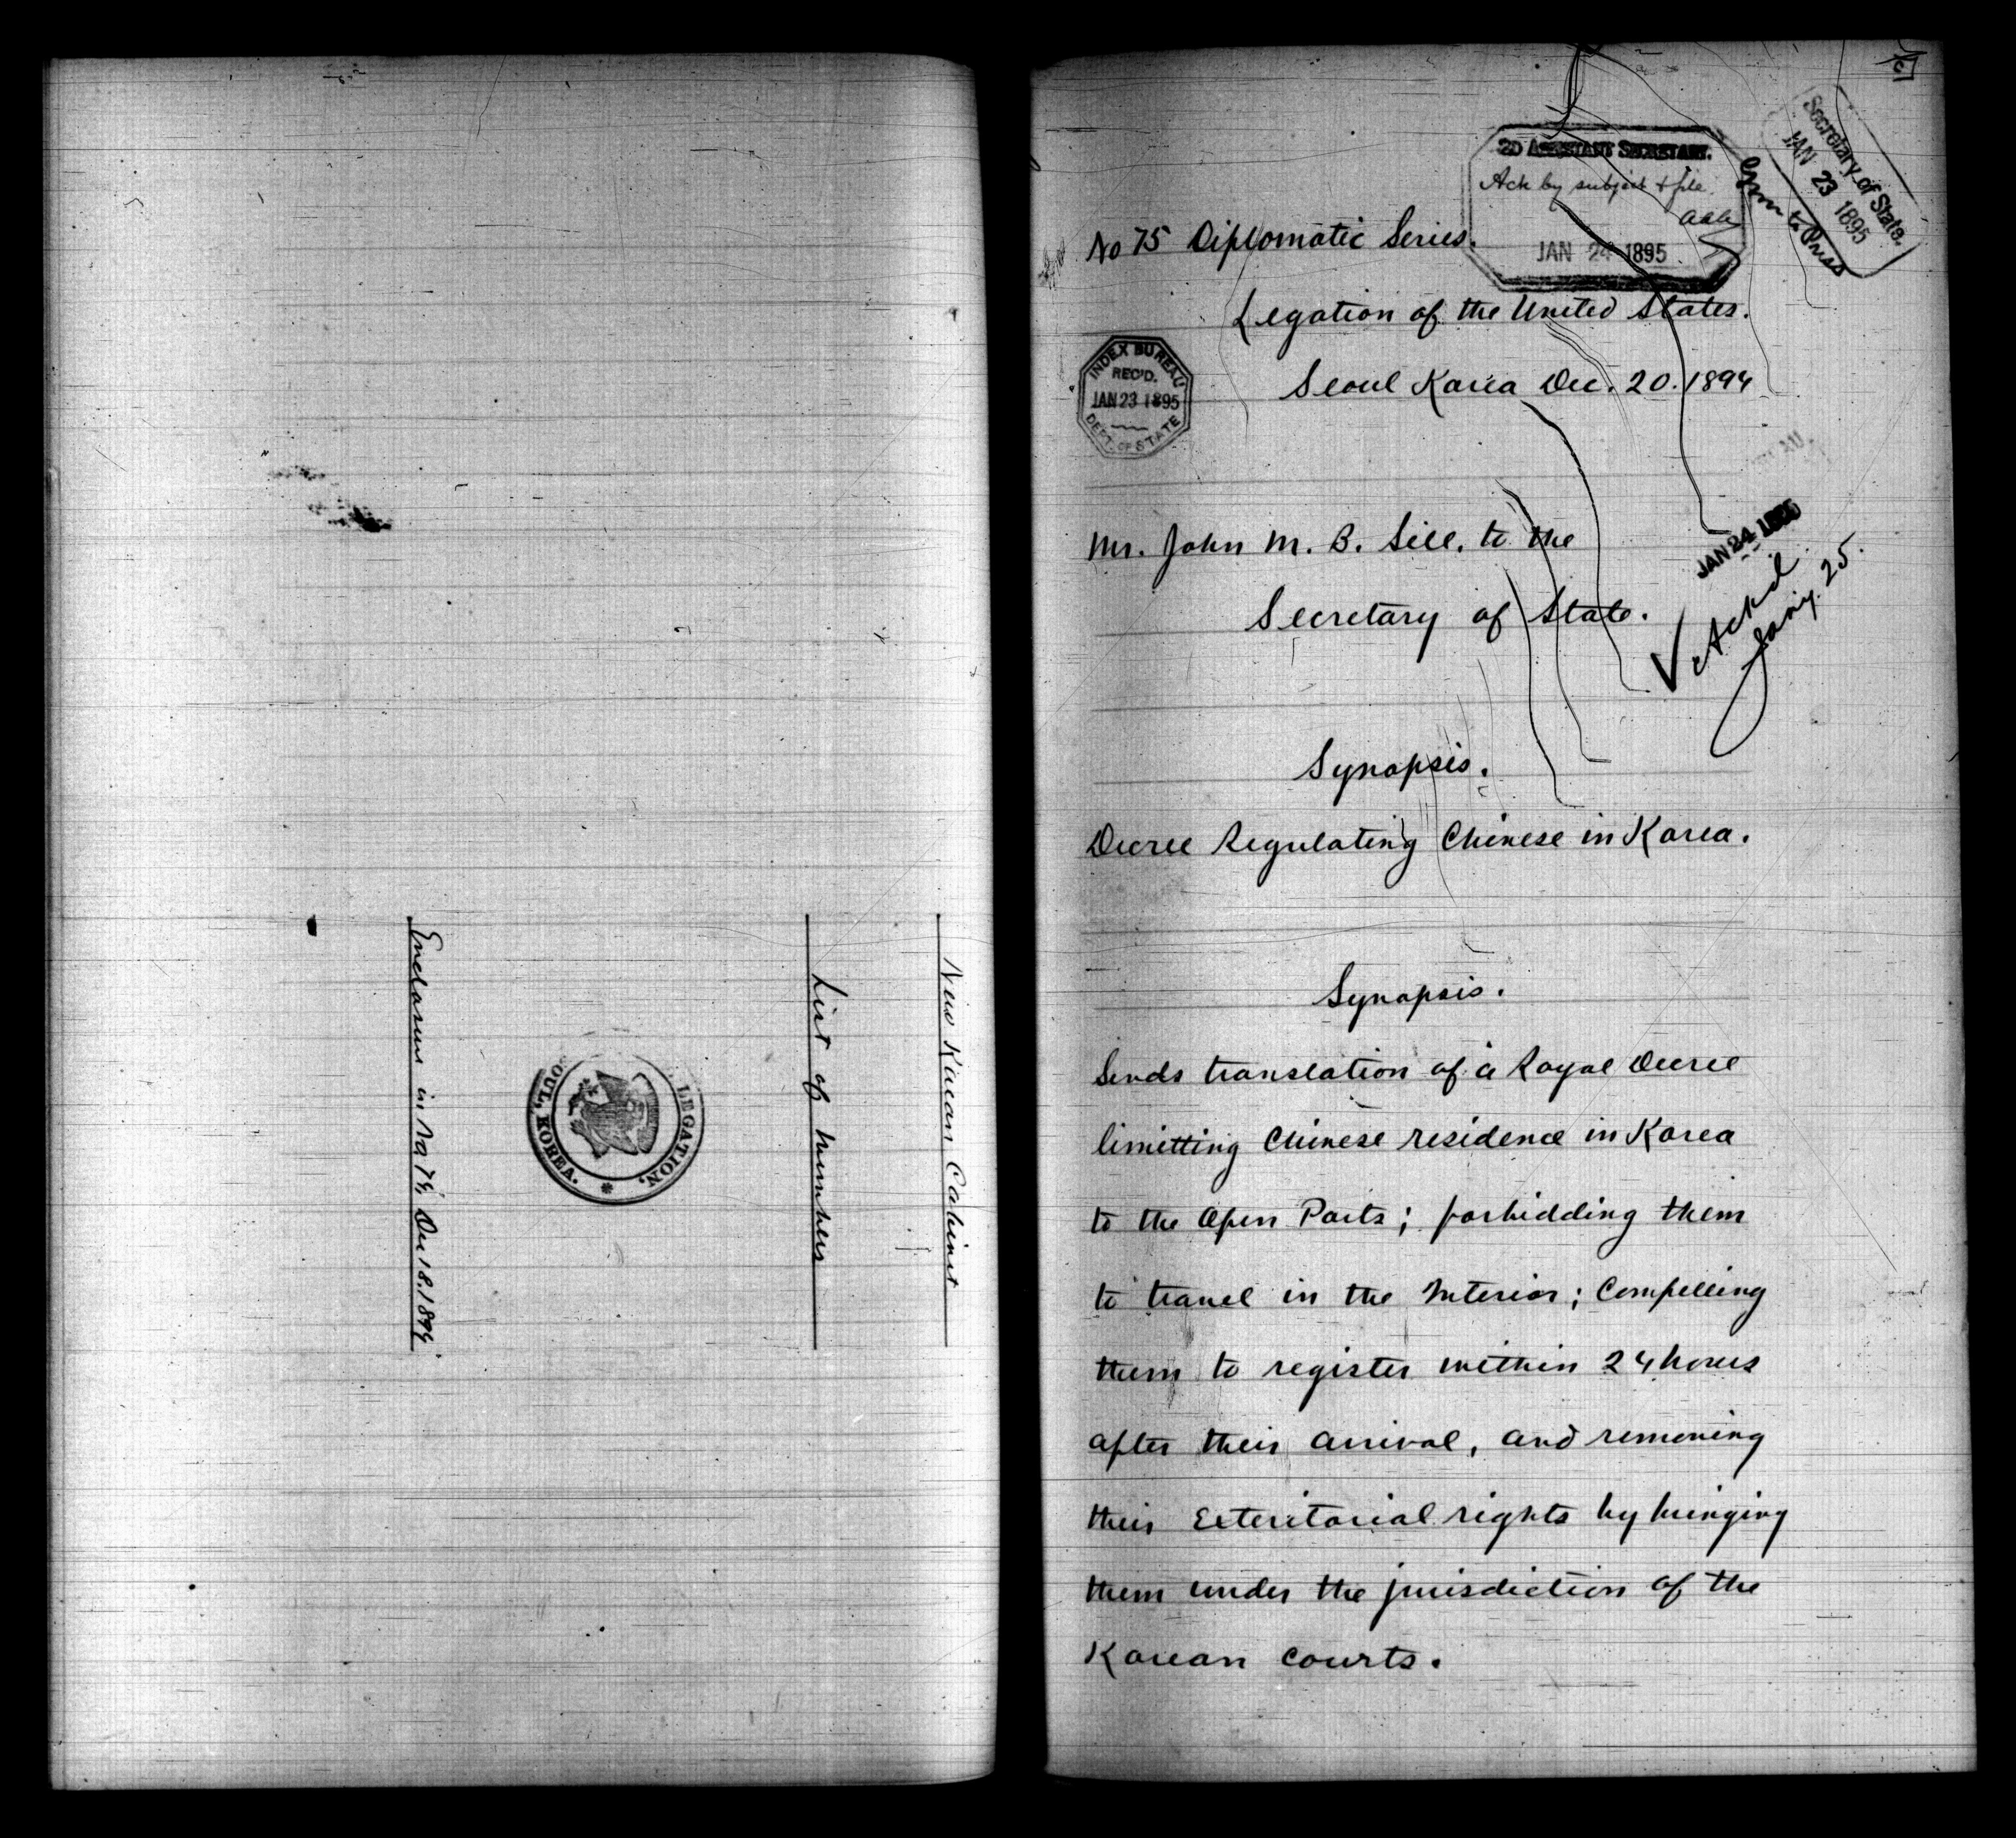 New Korean Cabinet
List of Members
LEGATION,
OUL, KOREA.
Enclosure in No 74, Dec 18. 1894.
Secretary of State.
JAN 23 1895
2D ASSISTANT SECRETARY.
Ack by subject & file.
aaa
JAN 24 1895
No 75 Diplomatic Series.
Legation of the United States.
Seoul Korea Dec. 20. 1894
INDEX BUREAU
REC'D.
JAN 23 1895
DEPT. OF STATE
Mr. John M. B. Sill, to the
Secretary of State.
JAN 24 1895
Ackd
Jany. 25.
Synopsis.
Decree Regulating Chinese in Korea.
Synopsis.
Sends translation of a Royal Decree
limitting Chinese residence in Korea
to the Open Ports; forbidding them
to travel in the Interior; Compelling
them to register within 24 hours
after their arrival, and removing
their Exteritorial rights by bringing
them under the jurisdiction of the
Korean courts.